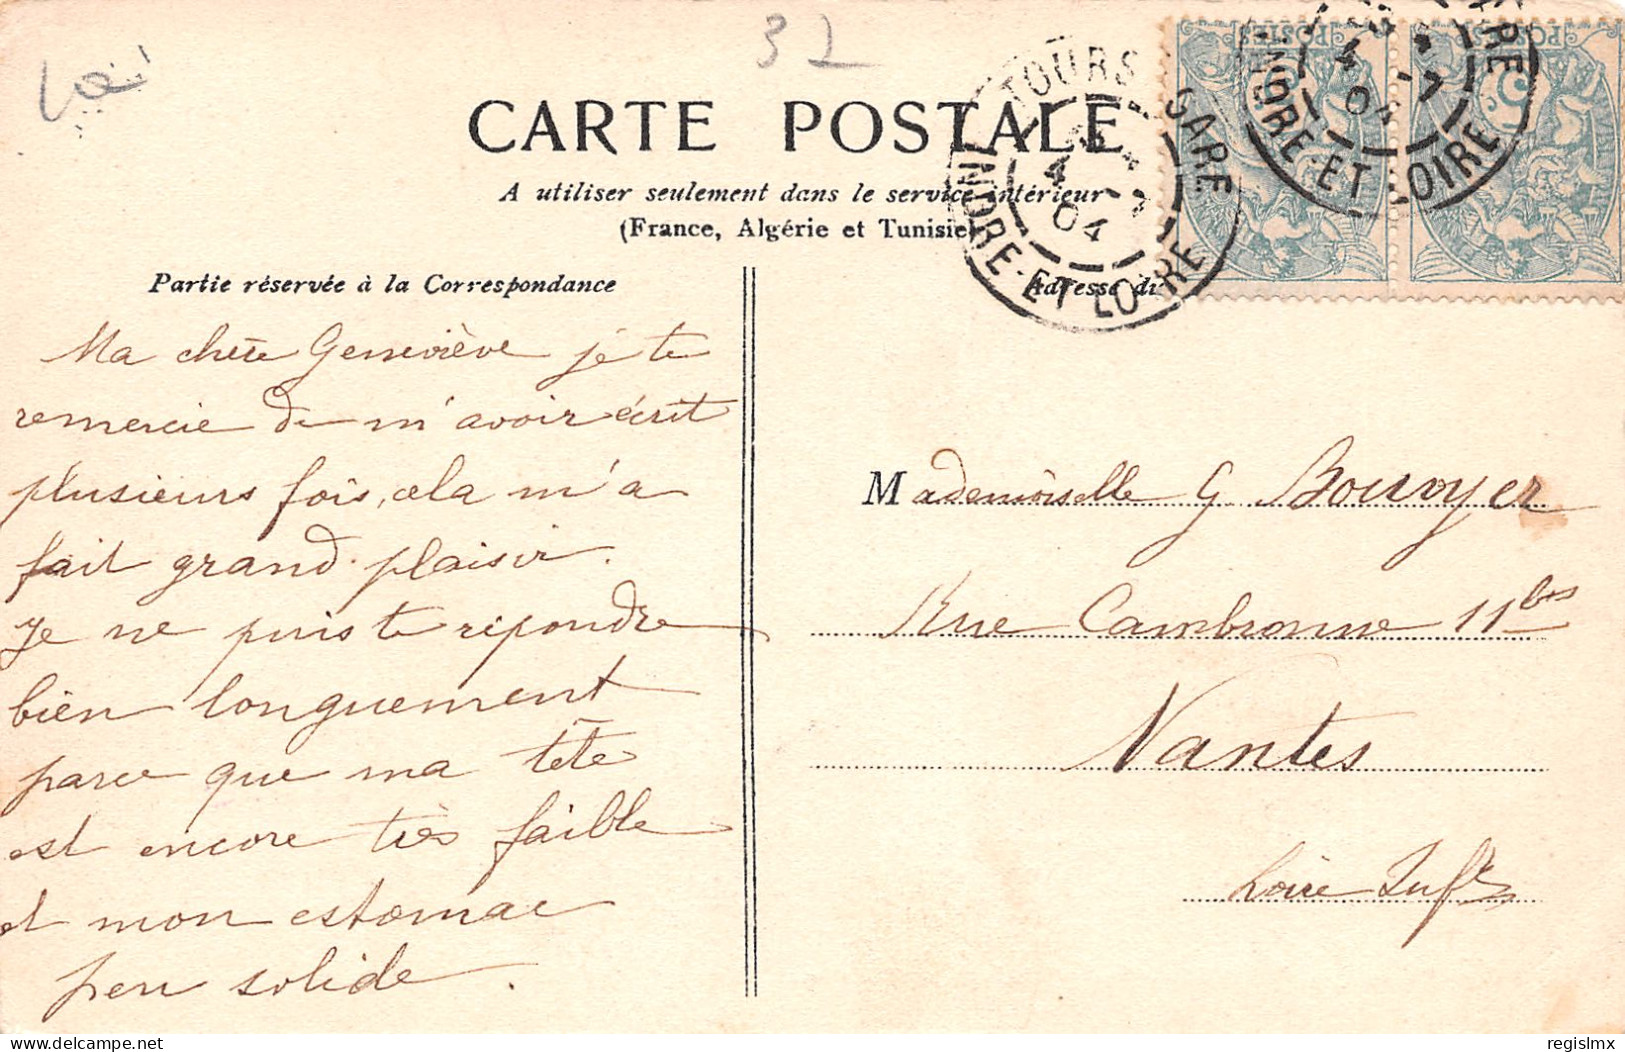 32
CARTE POSTALE
A utiliser seulement dans le service intérieur
(France, Algérie et Tunisie)
TOURS GARE
4 7
04
INDRE-ET-LOIRE
POSTES
POSTES
GARE
4 7
04
INDRE-ET-LOIRE
Partie réservée à la Correspondance
Adresse du
Ma chère Geneviève je te
remercie de m'avoir écrit
plusieurs fois, cela m'a
fait grand plaisir.
Je ne puis te répondre
bien longuement
parce que ma tête
est encore très faible
et mon estomac
peu solide.
Mademoiselle G Bouvyer
Rue Cambronne 11bis
Nantes
Loire Infre
www.delcampe.net
regislmx